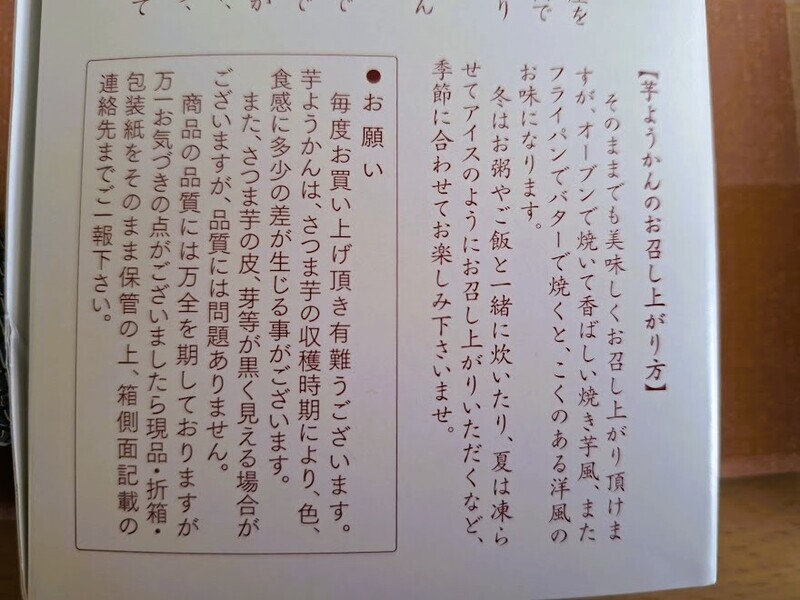 【芋ようかんのお召し上がり方】
そのままでも美味しくお召し上がり頂けま
すが、オーブンで焼いて香ばしい焼き芋風、また
フライパンでバターで焼くと、こくのある洋風の
お味になります。
冬はお粥やご飯と一緒に炊いたり、夏は凍ら
せてアイスのようにお召し上がりいただくなど、
季節に合わせてお楽しみ下さいませ。
●お願い
毎度お買い上げ頂き有難うございます。
芋ようかんは、さつま芋の収穫時期により、色、
食感に多少の差が生じる事がございます。
また、さつま芋の皮、芽等が黒く見える場合が
ございますが、品質には問題ありません。
商品の品質には万全を期しておりますが
万一お気づきの点がございましたら現品・折箱・
包装紙をそのまま保管の上、箱側面記載の
連絡先までご一報下さい。